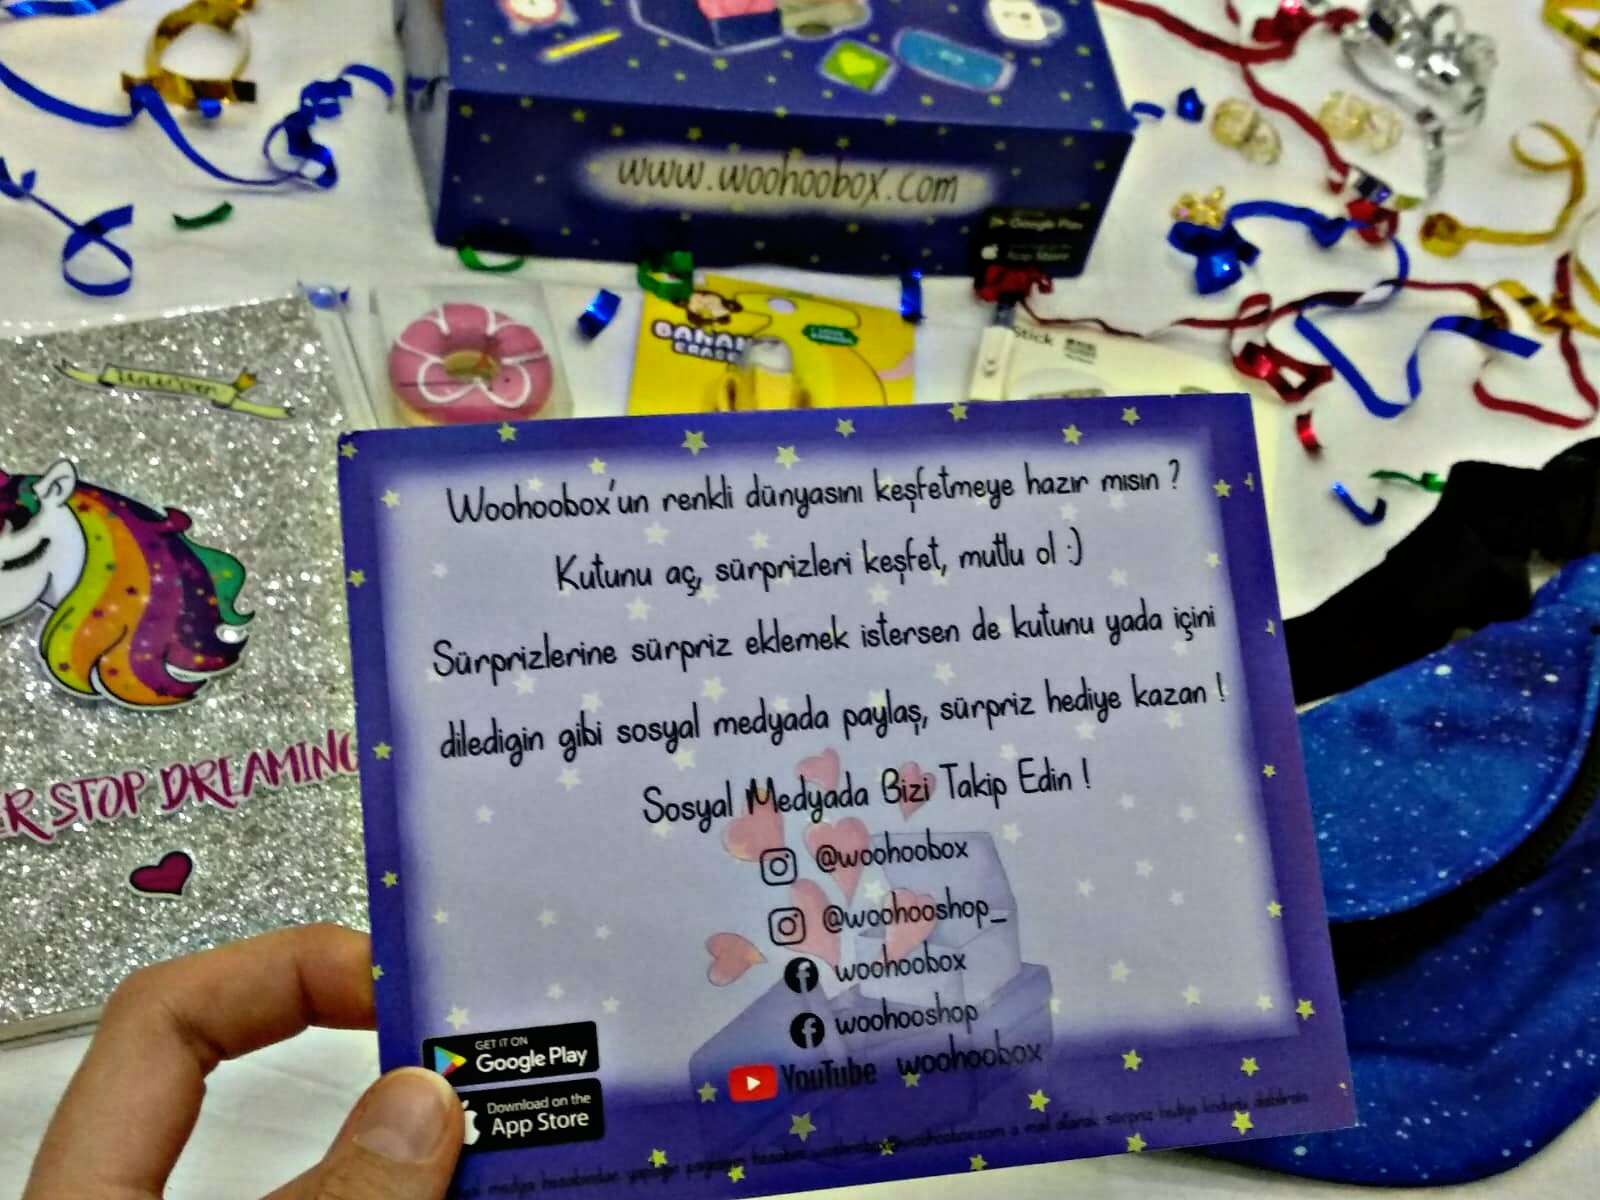 www.woohoobox.com
Google Play
App Store
Unicorn
ER STOP DREAMING
BANAN
ERASE
Stick
Woohoobox'un renkli dünyasını keşfetmeye hazır mısın ?
Kutunu aç, sürprizleri keşfet, mutlu ol :)
Sürprizlerine sürpriz eklemek istersen de kutunu yada içini
diledigin gibi sosyal medyada paylaş, sürpriz hediye kazan !
Sosyal Medyada Bizi Takip Edin !
@woohoobox
@woohooshop_
woohoobox
woohooshop
YouTube woohoobox
GET IT ON
Google Play
Download on the
App Store
medya hesabından yaptığın paylaşım